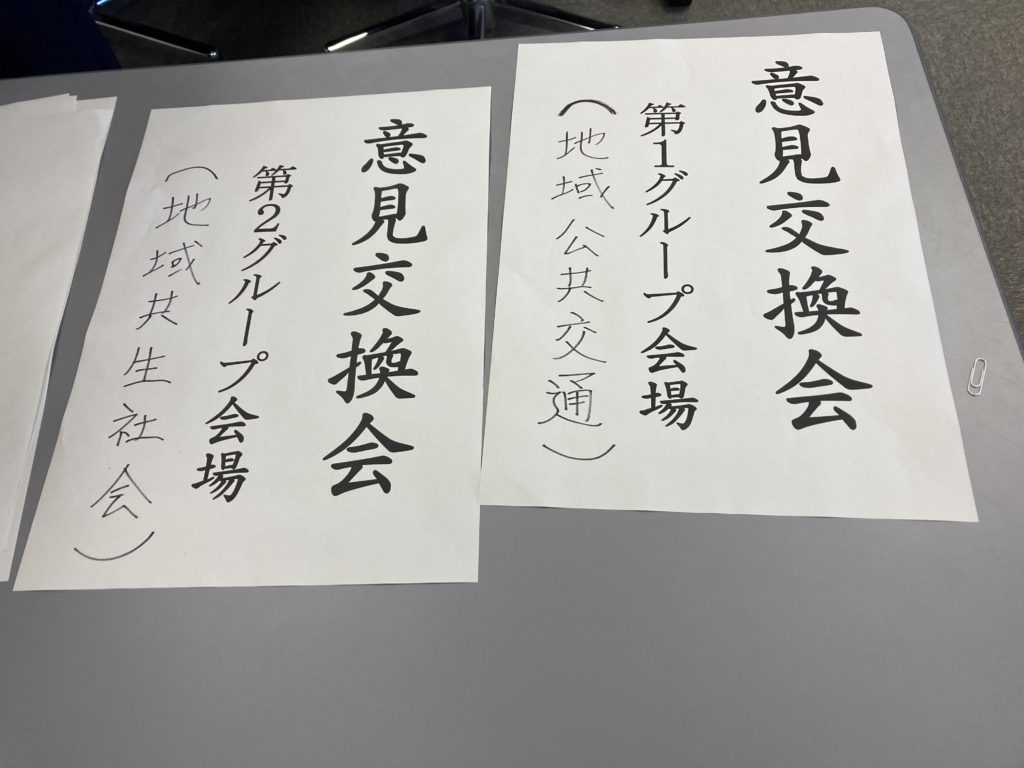 意見交換会
第1グループ会場
(地域公共交通)
意見交換会
第2グループ会場
(地域共生社会)